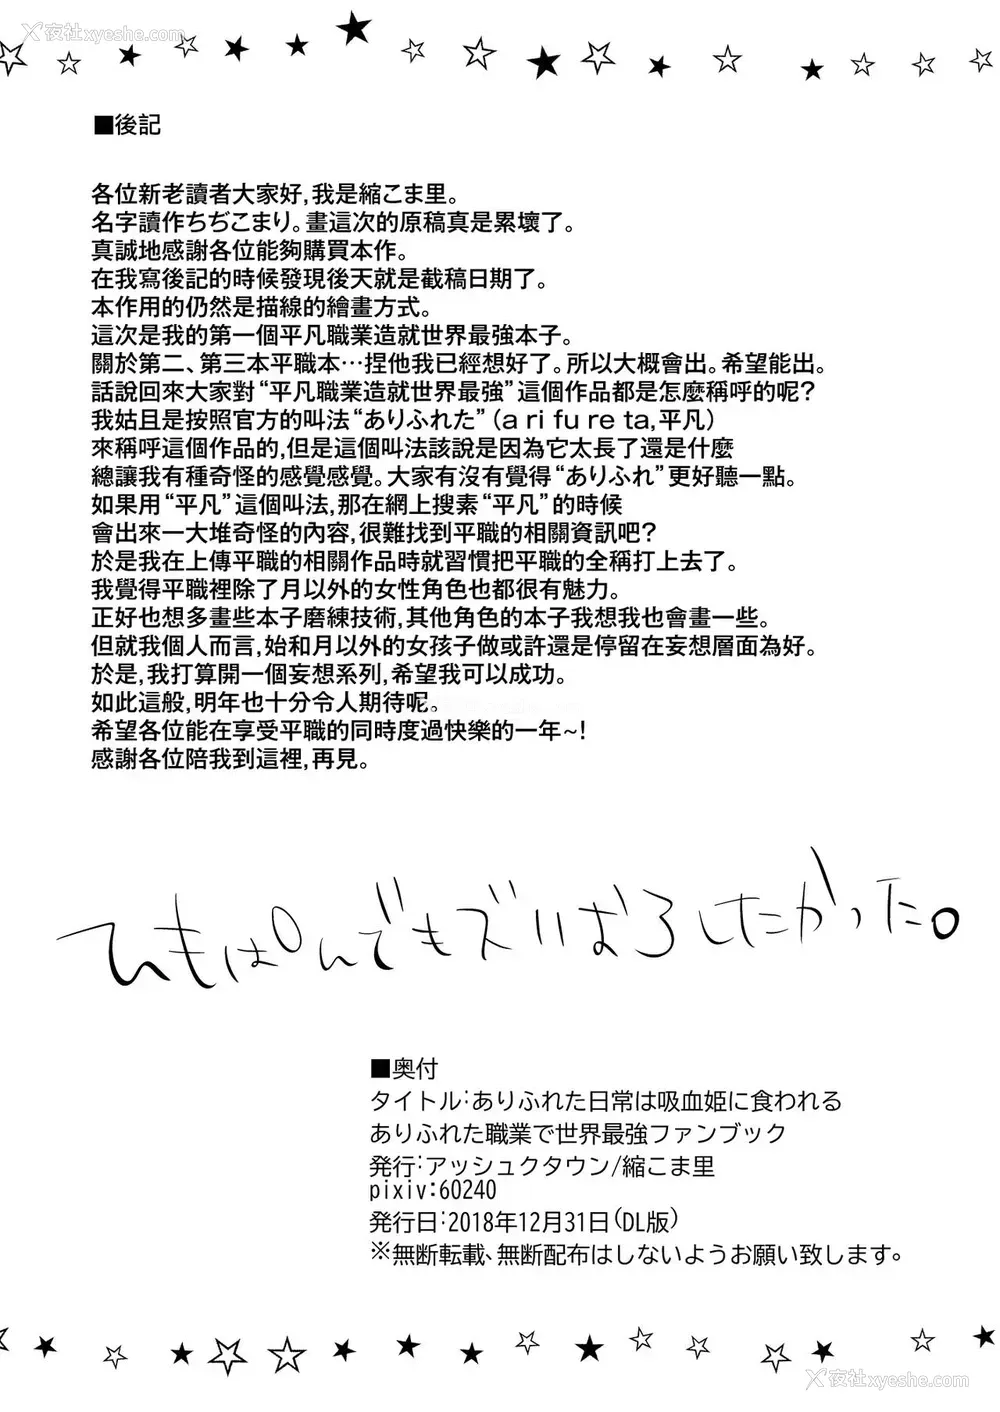 夜社xyeshe.com
■後記
各位新老讀者大家好,我是縮こま里。
名字讀作ちぢこまり。畫這次的原稿真是累壞了。
真誠地感謝各位能夠購買本作。
在我寫後記的時候發現後天就是截稿日期了。
本作用的仍然是描線的繪畫方式。
這次是我的第一個平凡職業造就世界最強本子。
關於第二、第三本平職本…捏他我已經想好了。所以大概會出。希望能出。
話說回來大家對“平凡職業造就世界最強”這個作品都是怎麼稱呼的呢?
我姑且是按照官方的叫法“ありふれた”(a ri fu re ta,平凡)
來稱呼這個作品的,但是這個叫法該說是因為它太長了還是什麼
總讓我有種奇怪的感覺感覺。大家有沒有覺得“ありふれ”更好聽一點。
如果用“平凡”這個叫法,那在網上搜素“平凡”的時候
會出來一大堆奇怪的內容,很難找到平職的相關資訊吧?
於是我在上傳平職的相關作品時就習慣把平職的全稱打上去了。
我覺得平職裡除了月以外的女性角色也都很有魅力。
正好也想多畫些本子磨練技術,其他角色的本子我想我也會畫一些。
但就我個人而言,始和月以外的女孩子做或許還是停留在妄想層面為好。
於是,我打算開一個妄想系列,希望我可以成功。
如此這般,明年也十分令人期待呢。
希望各位能在享受平職的同時度過快樂的一年~!
感謝各位陪我到這裡,再見。
ひもぱんでもズリおろしたかった。
■奥付
タイトル:ありふれた日常は吸血姫に食われる
ありふれた職業で世界最強ファンブック
発行:アッシュクタウン/縮こま里
pixiv:60240
発行日:2018年12月31日(DL版)
※無断転載、無断配布はしないようお願い致します。
夜社xyeshe.com